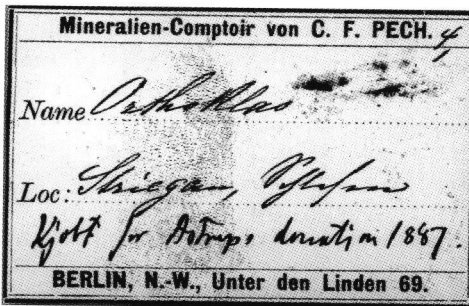 Mineralien-Comptoir von C. F. PECH.
4/
Name Orthoklas
Loc: Striegau, Schlesien
Kjøbt for Astrups donation 1887.
BERLIN, N.-W., Unter den Linden 69.